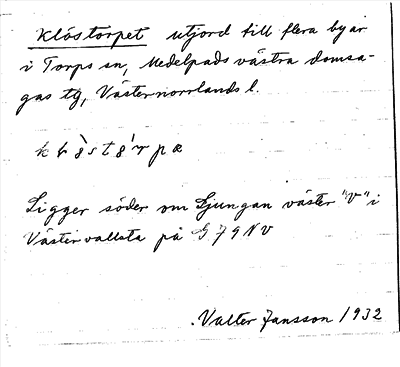 Klöstorpet utjord till flera byar
i Torps sn, Medelpads västra domsa-
gas tg, Västernorrlands l.
Ligger söder om Ljungan väster "V" i
Västervallsta på G 79 NV
Valter Jansson 1932